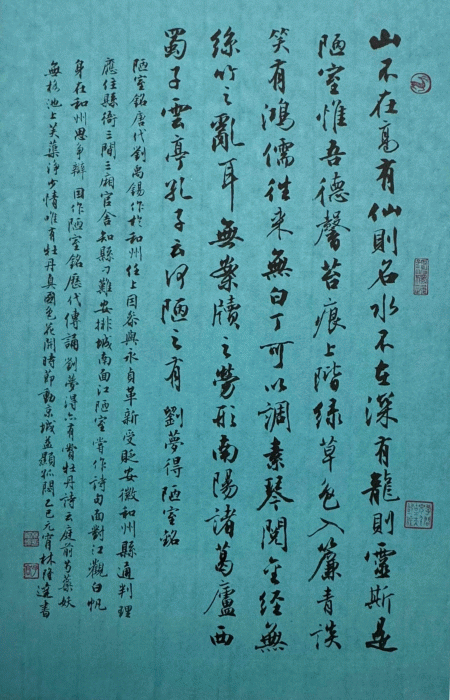 山不在高有仙則名水不在深有龍則靈斯是
陋室惟吾德馨苔痕上階綠草色入簾青談
笑有鴻儒往來無白丁可以調素琴閱金經無
絲竹之亂耳無案牘之勞形南陽諸葛廬西
蜀子雲亭孔子云何陋之有 劉夢得 陋室銘
陋室銘唐代劉禹錫作於和州任上因參與永貞革新受貶安徽和州縣通判理
應住縣衙三間三廂官舍知縣刁難安排城南面江陋室嘗作詩由面對江觀白帆
身在和州思爭辯因作陋室銘歷代傳誦劉夢得亦有賞牡丹詩云庭前芍藥妖
無格池上芙蕖淨少情唯有牡丹真國色花開時節動京城益顯 乙巳元宵林隆達書